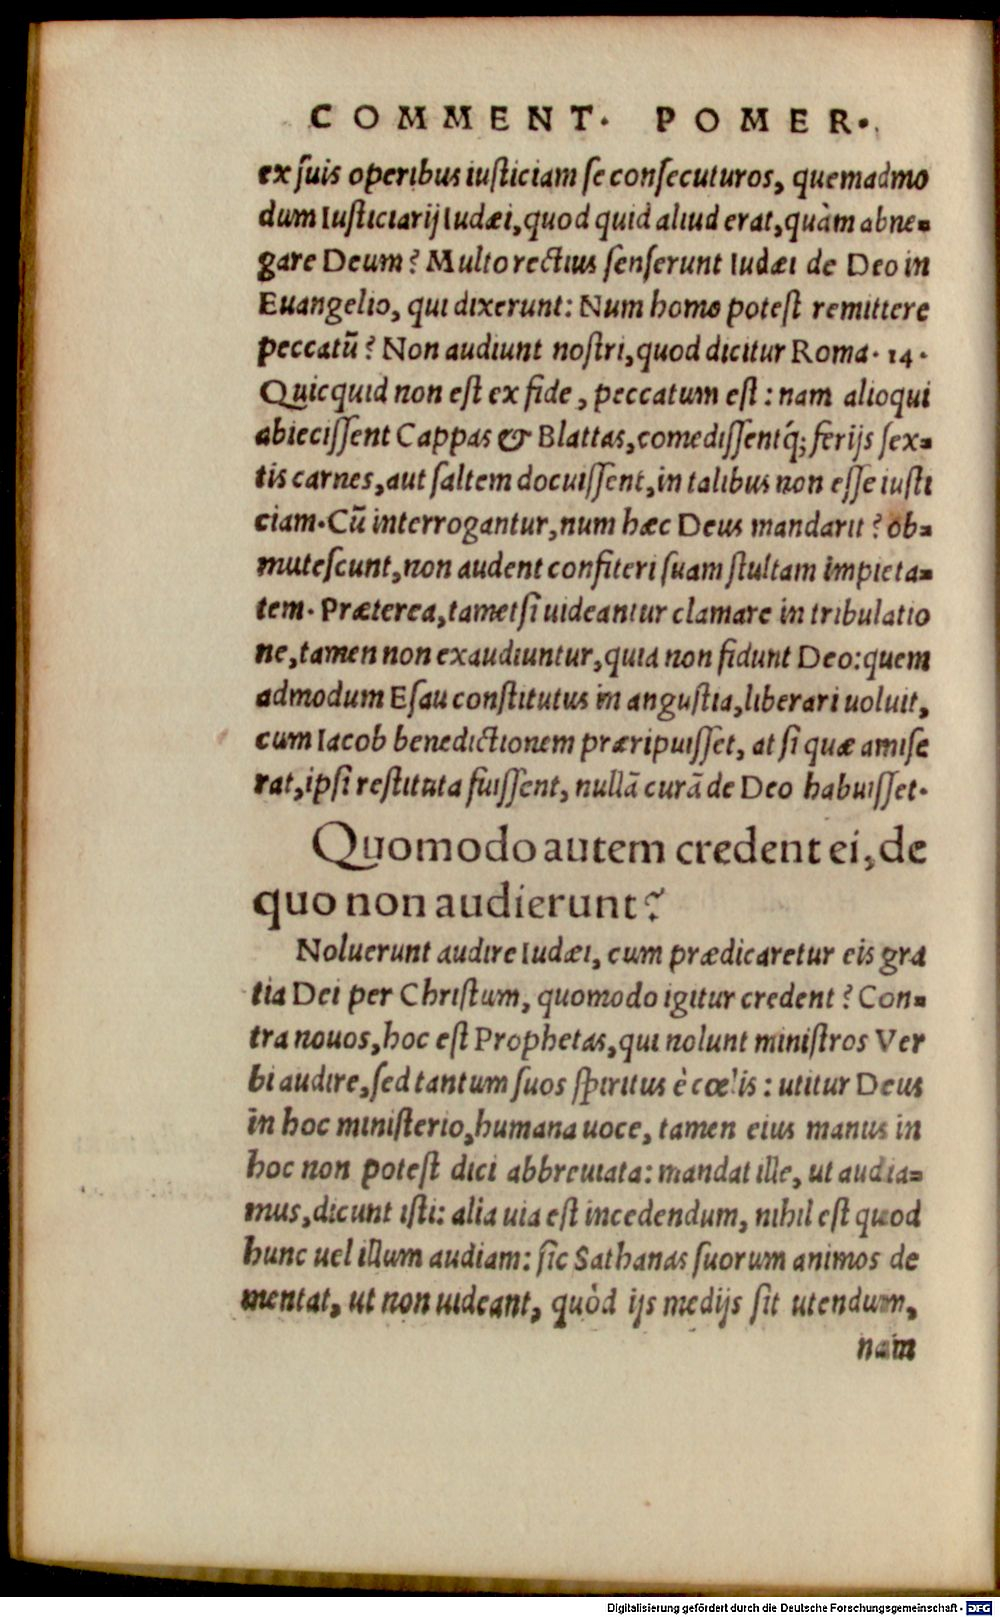 COMMENT. POMER.
ex ſuis operibus iuſticiam ſe conſecuturos, quemadmo
dum Iuſticiarij Iudæi, quod quid aliud erat, quàm abne-
gare Deum? Multo rectius ſenſerunt Iudæi de Deo in
Euangelio, qui dixerunt: Num homo poteſt remittere
peccatū? Non audiunt noſtri, quod dicitur Roma. 14.
Quicquid non eſt ex fide, peccatum eſt: nam alioqui
abieciſſent Cappas & Blattas, comediſſentq́; ferijs ſex-
tis carnes, aut ſaltem docuiſſent, in talibus non eſſe iuſti
ciam. Cū interrogantur, num hæc Deus mandarit? ob-
muteſcunt, non audent confiteri ſuam ſtultam impieta-
tem. Præterea, tametſi uideantur clamare in tribulatio
ne, tamen non exaudiuntur, quia non fidunt Deo: quem
admodum Eſau conſtitutus in anguſtia, liberari uoluit,
cum Iacob benedictionem præripuiſſet, at ſi quæ amiſe
rat, ipſi reſtituta fuiſſent, nullā curā de Deo habuiſſet.
Quomodo autem credent ei, de
quo non audierunt?
Noluerunt audire Iudæi, cum prædicaretur eis gra
tia Dei per Chriſtum, quomodo igitur credent? Con-
tra nouos, hoc eſt Prophetas, qui nolunt miniſtros Ver
bi audire, ſed tantum ſuos ſpiritus è cœlis: utitur Deus
in hoc miniſterio, humana uoce, tamen eius manus in
hoc non poteſt dici abbreuiata: mandat ille, ut audia-
mus, dicunt iſti: alia uia eſt incedendum, nihil eſt quod
hunc uel illum audiam: ſic Sathanas ſuorum animos de
mentat, ut non uideant, quòd ijs medijs ſit utendum,
nam
Digitalisierung gefördert durch die Deutsche Forschungsgemeinschaft - DFG